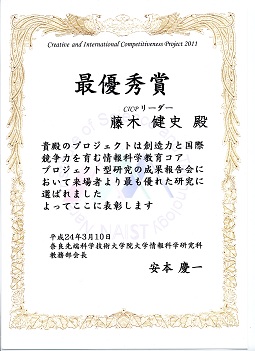 Creative and International Competitiveness Project 2011
最優秀賞
CICPリーダー
藤木 健史 殿
貴殿のプロジェクトは創造力と国際
競争力を育む情報科学教育コア
プロジェクト型研究の成果報告会に
おいて来場者より最も優れた研究に
選ばれました
よってここに表彰します
平成24年3月10日
奈良先端科学技術大学院大学情報科学研究科
教務部会長
安本 慶一